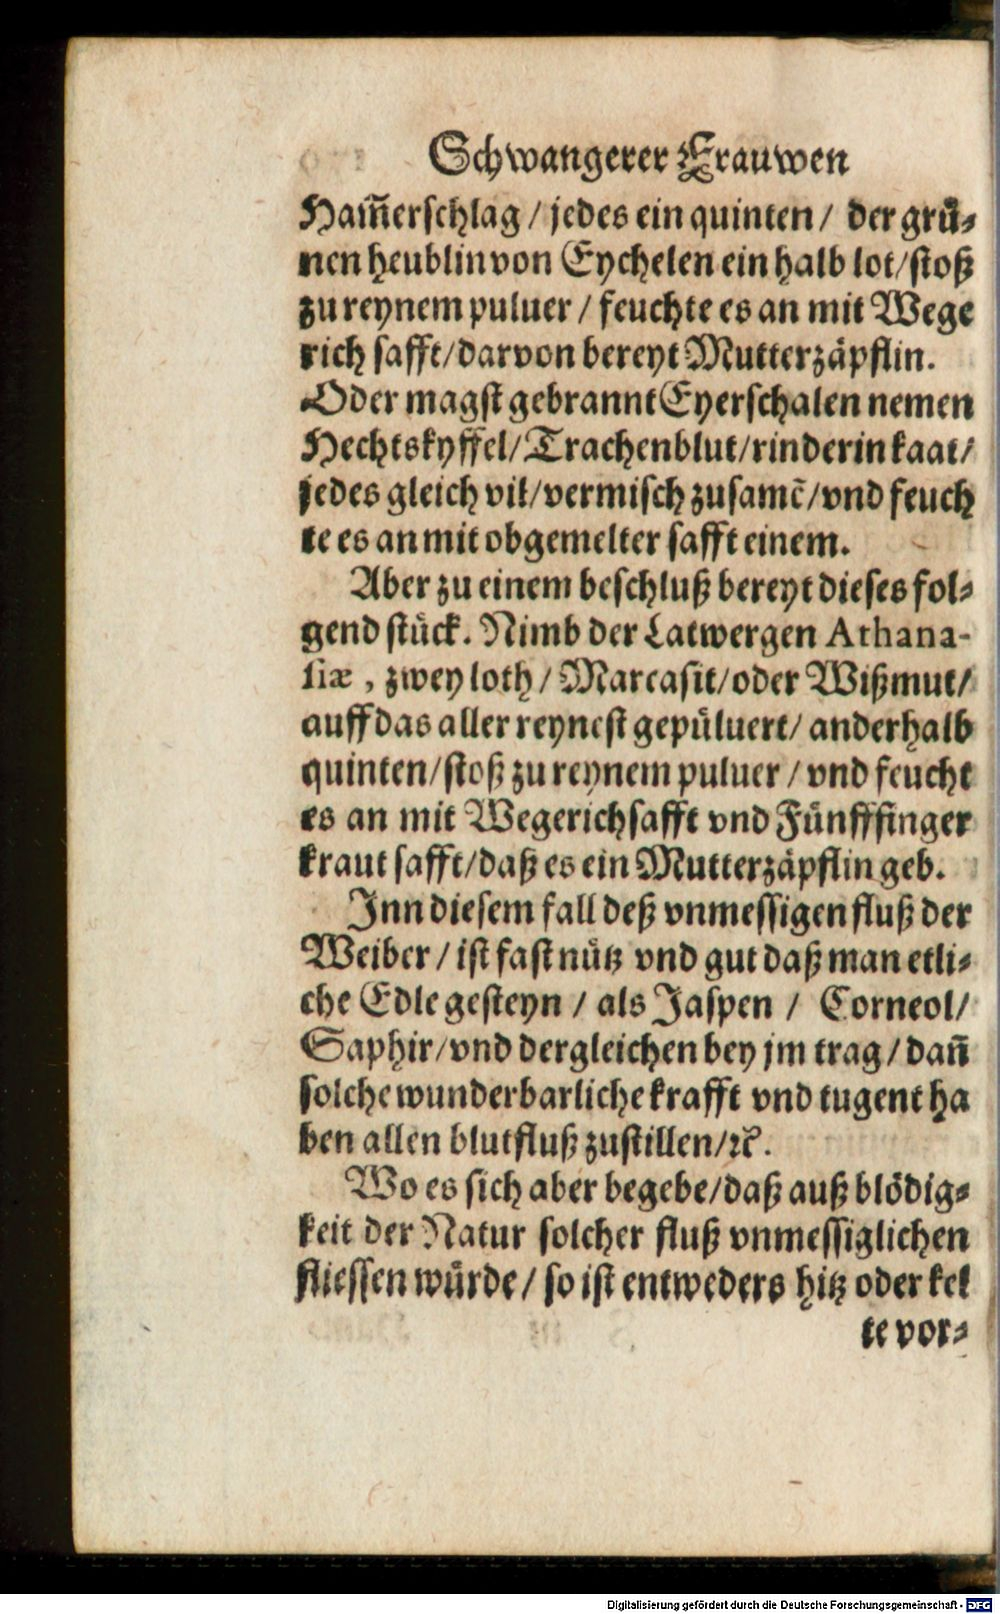 Schwangerer Frauwen
Ham̃erschlag / jedes ein quinten / der grů⸗
nen heublin von Eychelen ein halb lot / stoß
zu reynem puluer / feuchte es an mit Wege
rich safft / darvon bereyt Mutterzäpflin.
Oder magst gebrannt Eyerschalen nemen
Hechtskyffel / Trachenblut / rinderin kaat /
jedes gleich vil / vermisch zusamẽ / vnd feuch
te es an mit obgemelter safft einem.
Aber zu einem beschluß bereyt dieses fol⸗
gend stück. Nimb der Latwergen Athana-
siæ, zwey loth / Marcasit / oder Wißmut /
auff das aller reynest gepüluert / anderhalb
quinten / stoß zu reynem puluer / vnd feucht
es an mit Wegerichsafft vnd Fünfffinger
kraut safft / daß es ein Mutterzäpflin geb.
Inn diesem fall deß vnmessigen fluß der
Weiber / ist fast nütz vnd gut daß man etli⸗
che Edle gesteyn / als Jaspen / Corneol /
Saphir / vnd dergleichen bey jm trag / dañ
solche wunderbarliche krafft vnd tugent ha
ben allen blutfluß zustillen / ꝛc̃.
Wo es sich aber begebe / daß auß blödig⸗
keit der Natur solcher fluß vnmessiglichen
fliessen würde / so ist entweders hitz oder kel
te vor⸗
Digitalisierung gefördert durch die Deutsche Forschungsgemeinschaft - DFG